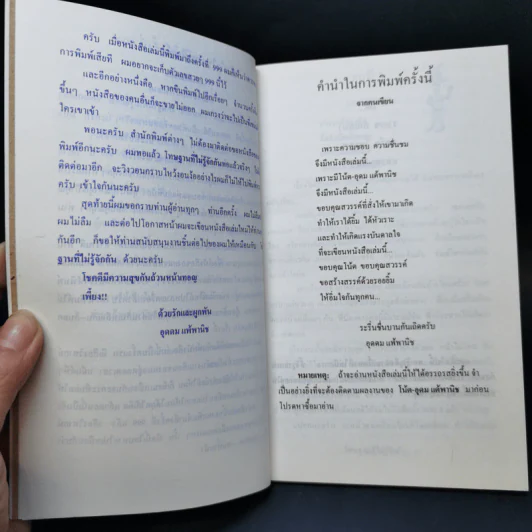 ครับ เมื่อหนังสือเล่มนี้พิมพ์มาถึงครั้งที่ 999
การพิมพ์เสียที ผมอยากจะเก็บตัวเลขสวยๆ 999 นี้ไว้
และอีกอย่างหนึ่งคือ หากขืนพิมพ์ไปอีกเรื่อยๆ
ขึ้นๆ หนังสือของคนอื่นก็จะขายไม่ออก
ใครเขาเข้า
พอนะครับ สำนักพิมพ์ต่างๆ ไม่ต้องมาติดต่อขอ
พิมพ์อีกนะครับ ผมพอแล้ว โทษฐานที่ไม่รู้จักกัน
ติดต่อมาอีก จะวิงวอนกราบไหว้อ้อนวอนอย่างไรผมก็ไม่ให้พิมพ์
ครับ เข้าใจกันนะครับ
สุดท้ายนี้ผมขอกราบท่านผู้อ่านทุกๆ ท่านอีกครั้ง
ผมไม่ลืม และต่อไปโอกาสหน้าผมจะเขียนหนังสือเล่มใหม่
กันอีก ก็ขอให้ท่านสนับสนุนงานชิ้นต่อไปของผมให้เหมือนกับ
ฐานที่ไม่รู้จักกัน ด้วยนะครับ
โชคดีมีความสุขกันถ้วนหน้าเทอญ
เพี้ยง!!
ด้วยรักและผูกพัน
อุดตม แพ้พานิช
คำนำในการพิมพ์ครั้งนี้
จากคนเขียน
เพราะความชอบ ความชื่นชม
จึงมีหนังสือเล่มนี้...
เพราะมีโน้ต-อุดม แต้พานิช
จึงมีหนังสือเล่มนี้...
ขอบคุณสวรรค์ที่ส่งให้เขามาเกิด
ทำให้เราได้ยิ้ม ได้หัวเราะ
และทำให้เกิดแรงบันดาลใจ
ที่จะเขียนหนังสือเล่มนี้...
ขอบคุณโน้ต ขอบคุณสวรรค์
ขอสร้างสรรค์ด้วยรอยยิ้ม
ให้อิ่มใจกันทุกคน...
ระรื่นชื่นบานกันเถิดครับ
อุดตม แพ้พานิช
หมายเหตุ: ถ้าจะอ่านหนังสือเล่มนี้ให้ได้อรรถรสยิ่งขึ้น จำ
เป็นอย่างยิ่งที่จะต้องติดตามผลงานของ โน้ต-อุดม แต้พานิช มาก่อน
โปรดหาซื้อมาอ่าน